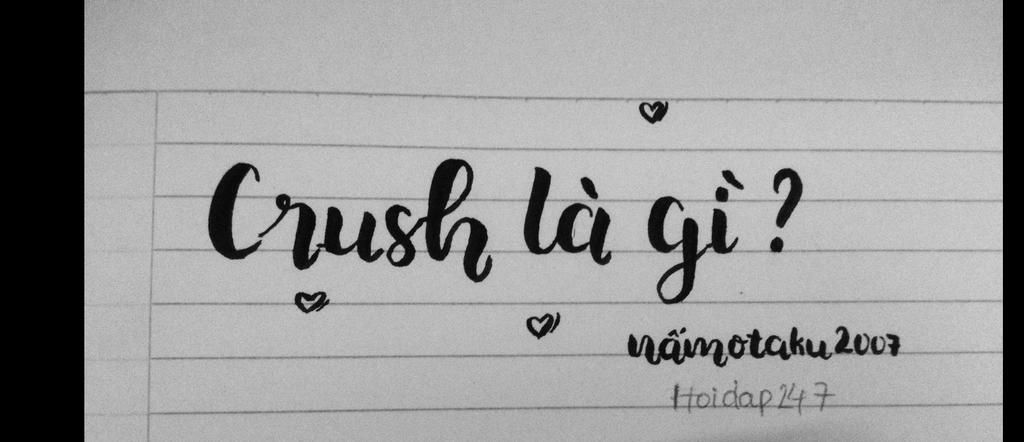 Crush là gì?
nấmotaku2007
Hoidap247